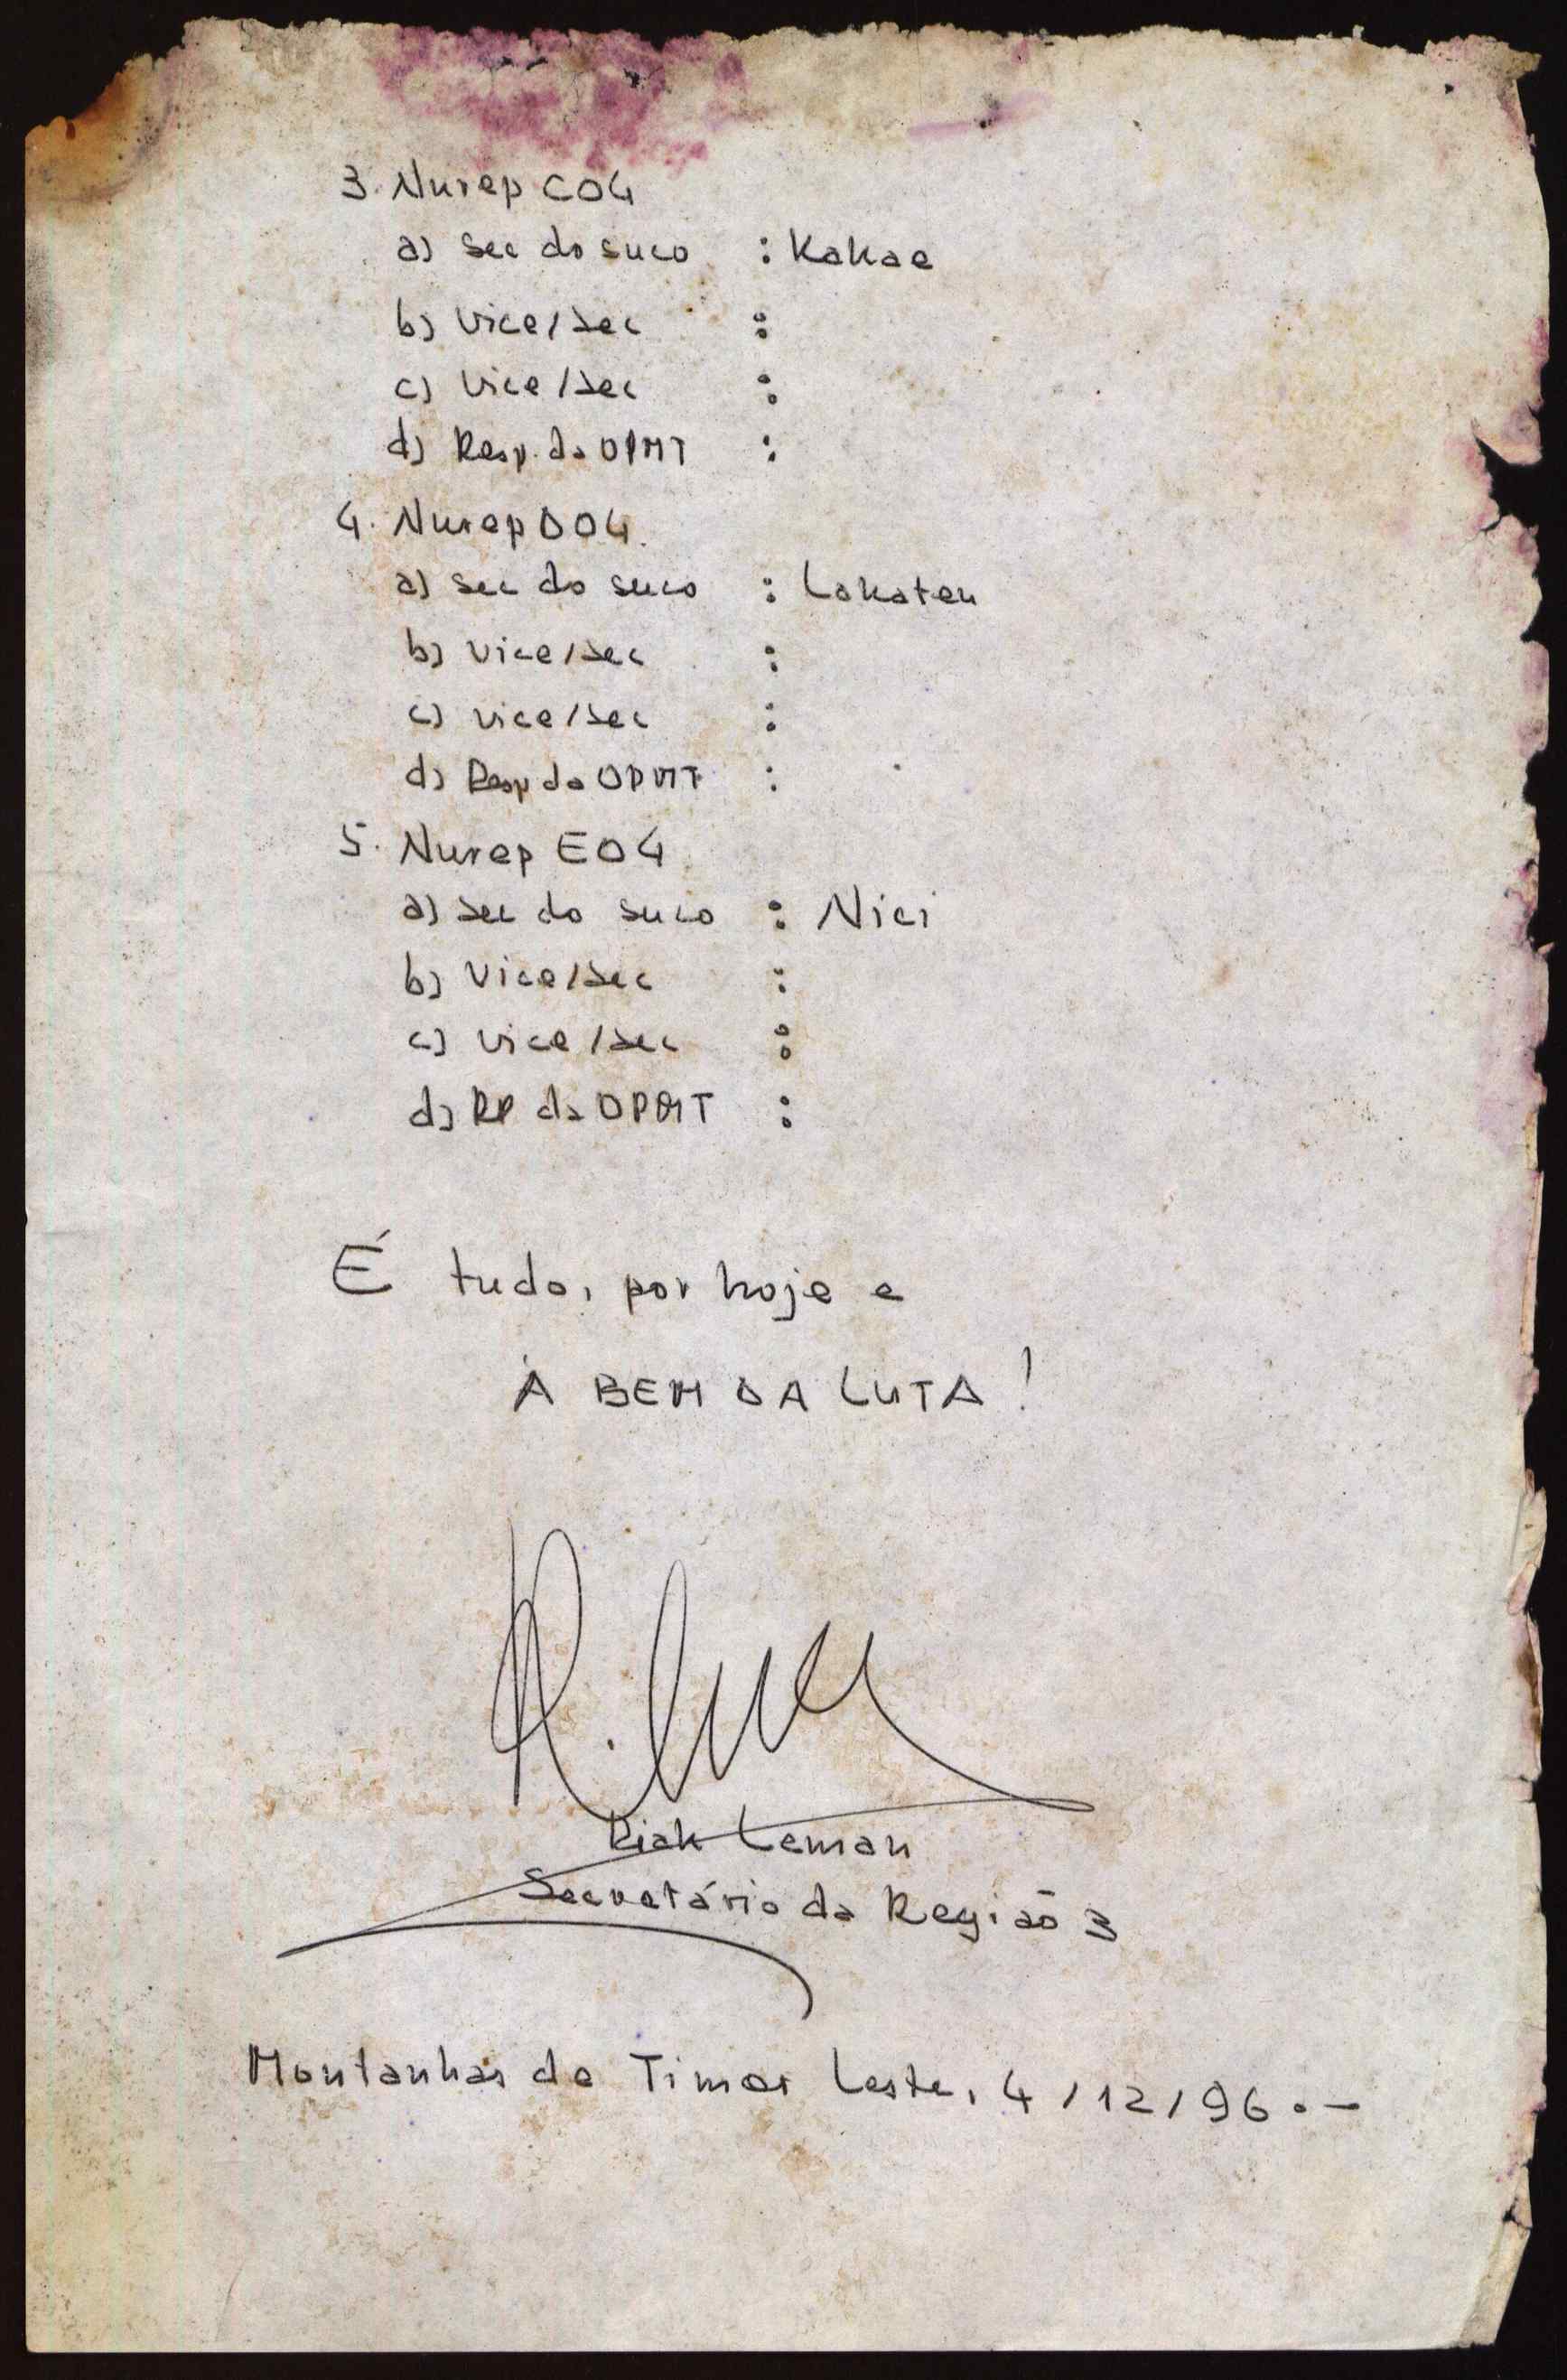 3. Nurep C04
a) Sec do suco : Kakae
b) Vice/Sec :
c) Vice/Sec :
d) Resp. da OPMT :
4. Nurep D04.
a) Sec do suco : Lakateu
b) Vice/Sec :
c) Vice/Sec :
d) Resp da OPMT :
5. Nurep E04
a) Sec do suco : Nici
b) Vice/Sec :
c) Vice/Sec :
d) RP da OPMT :
É tudo, por hoje e
À BEM DA LUTA !
Riak Leman
Secretário da Região 3
Montanhas de Timor Leste, 4/12/96.-